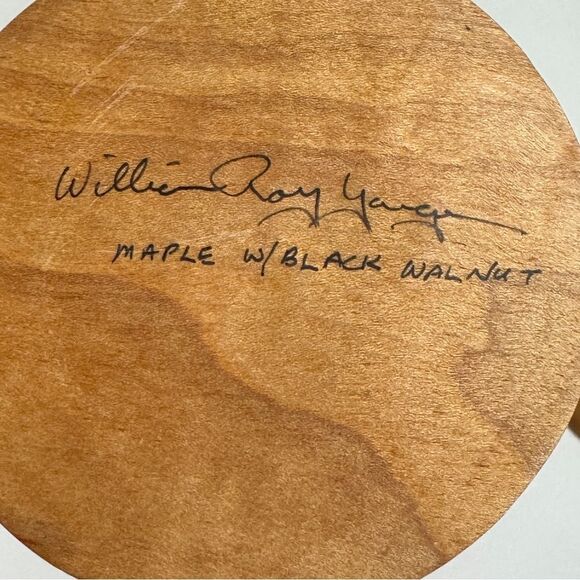 William Roy Yarger
MAPLE W/BLACK WALNUT